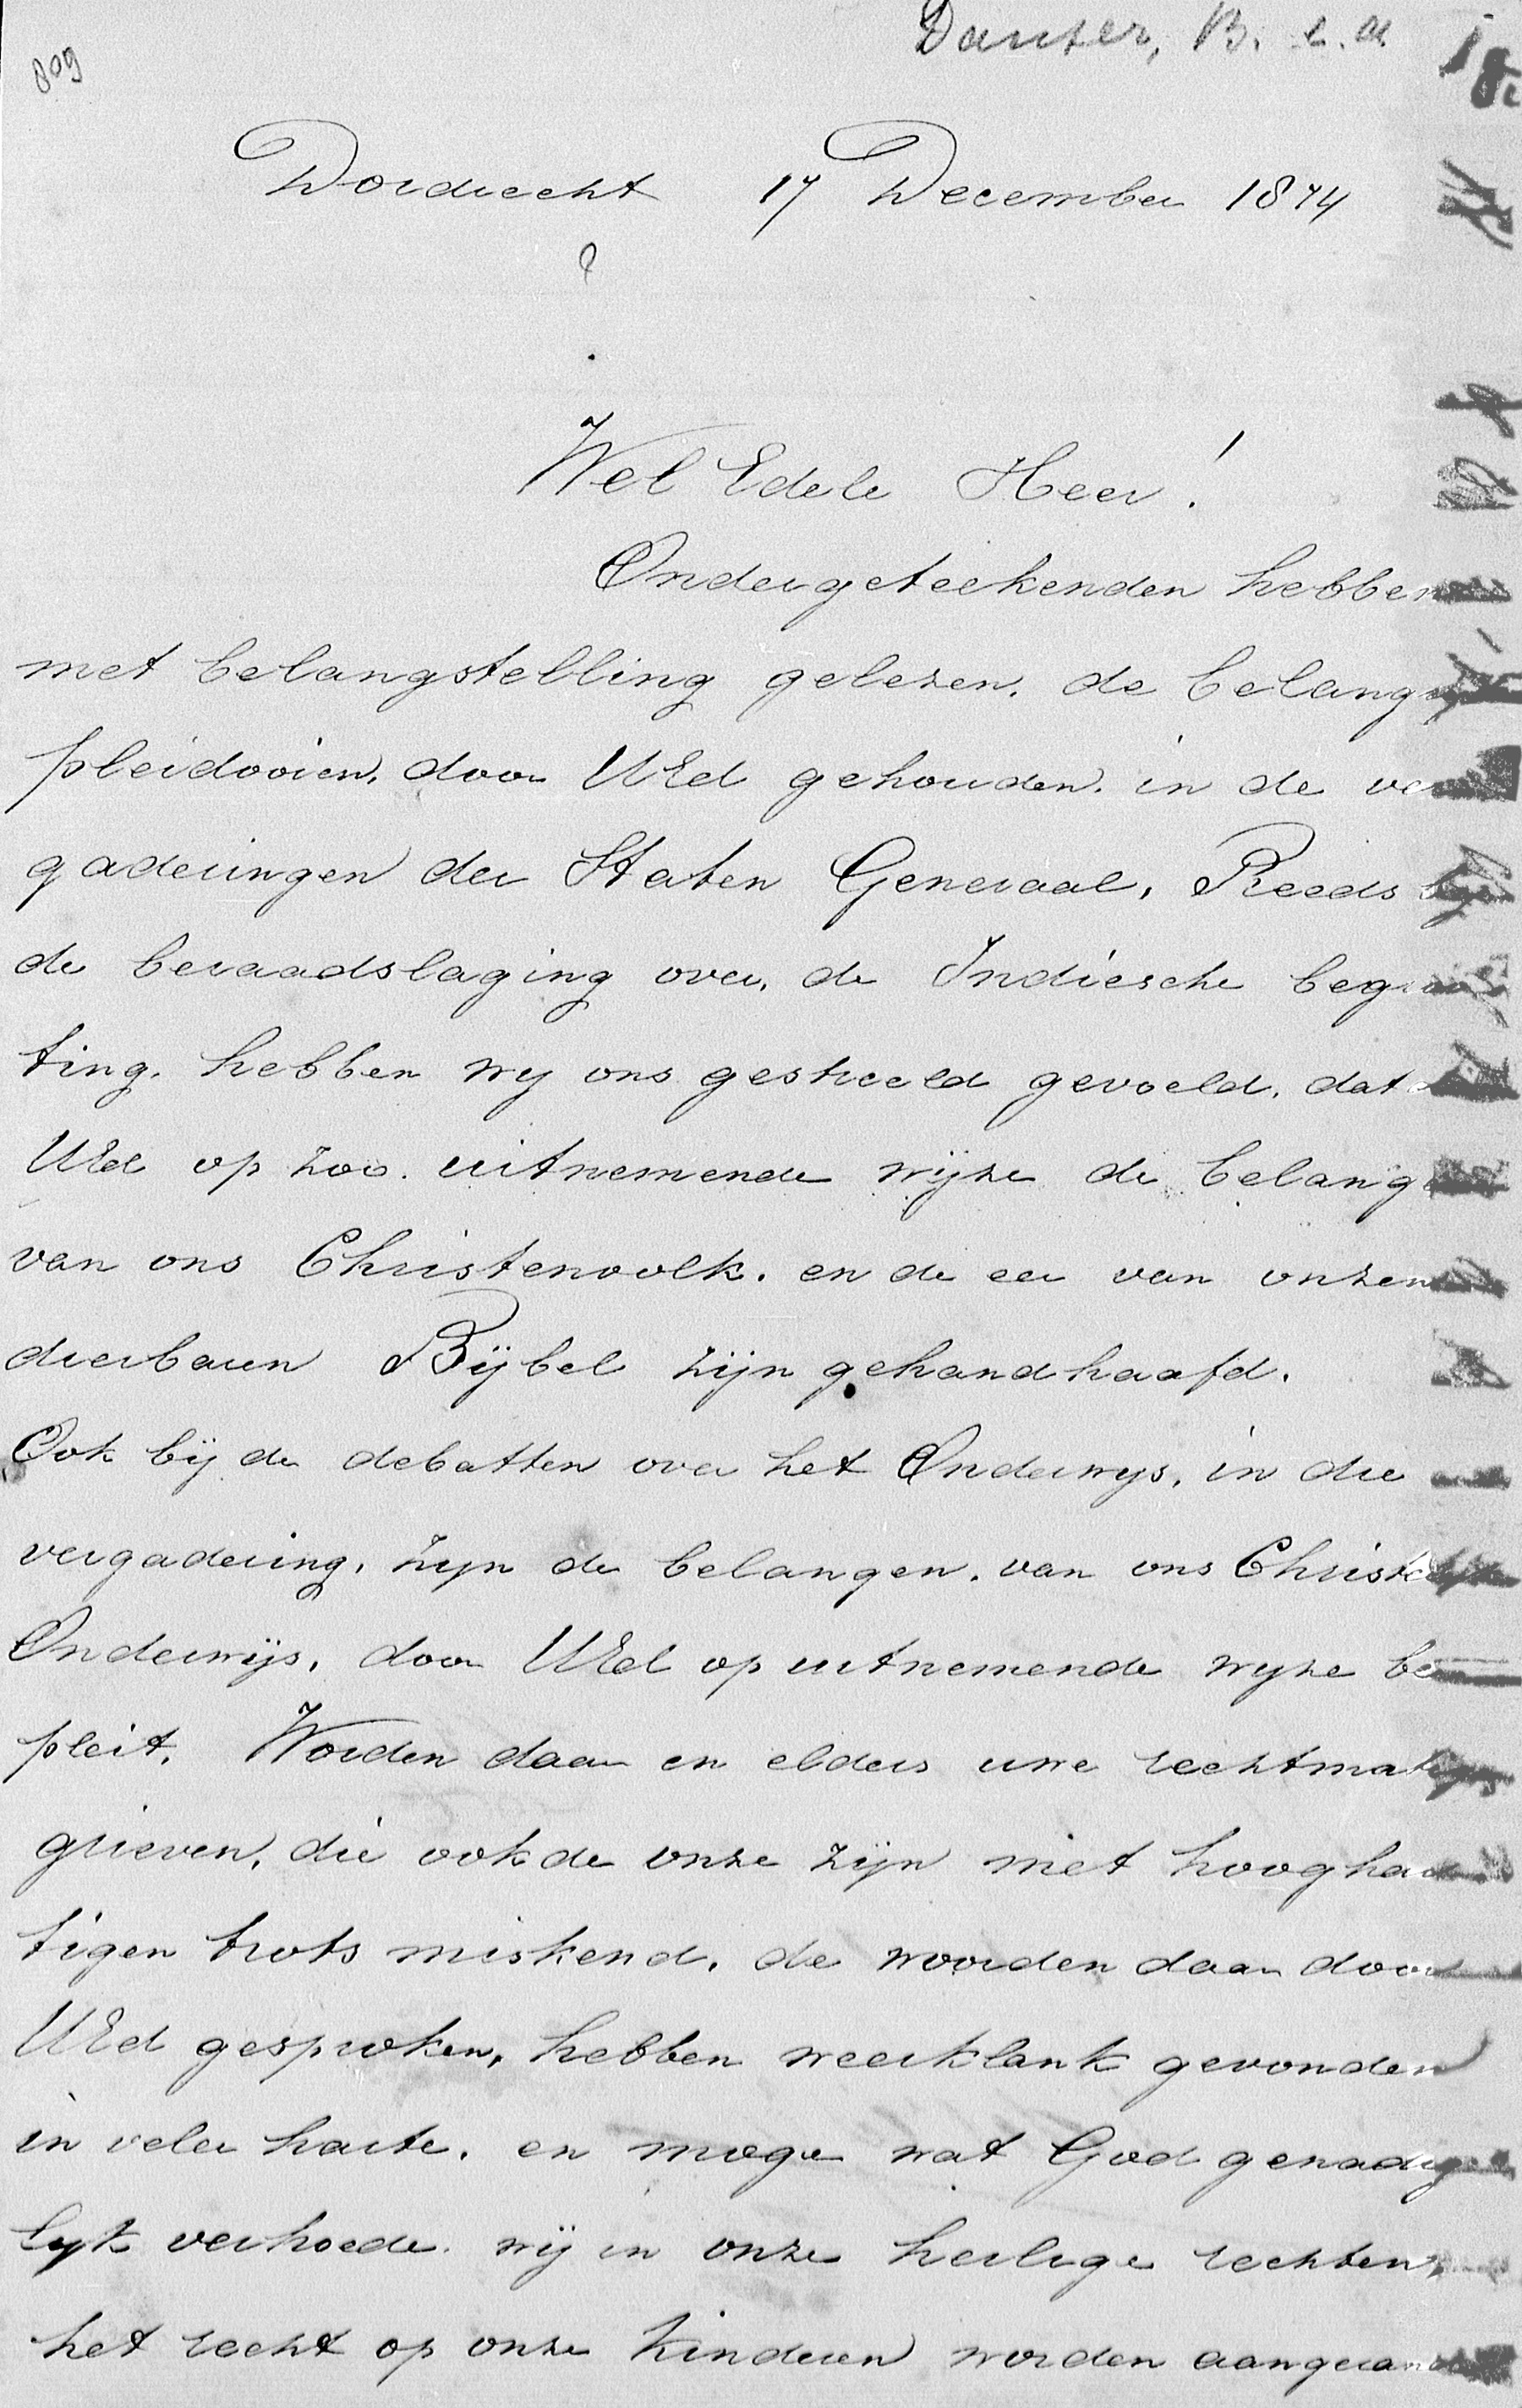 Danser, B. e.a.
809
Dordrecht 17 December 1874
Wel Edele Heer!
Ondergeteekenden hebben
met belangstelling gelezen. de belang
pleidooien, door UEd gehouden. in de ver
gaderingen der Staten Generaal, Reeds by
de beraadslaging over, de Indiesche begroo
ting. hebben wy ons gestreeld gevoeld, dat
UEd op zoo. uitnemende wijze de belangen
van ons Christenvolk. en de eer van onzen
dierbaren Bijbel zijn gehandhaafd.
Ook bij de debatten over het Onderwys, in die
vergadering, zyn de belangen. van ons Christelijk
Onderwijs, door UEd op uitnemende wyze be
pleit. Worden daar en elders uwe rechtmatige
grieven, die ook de onze zijn met hooghar
tigen trots miskend, de woorden daar door
UEd gesproken, hebben weerklank gevonden
in veler harte. en moge wat God genadig
lyk verhoede. wij in onze heilige rechten,
het recht op onze kinderen worden aangerand